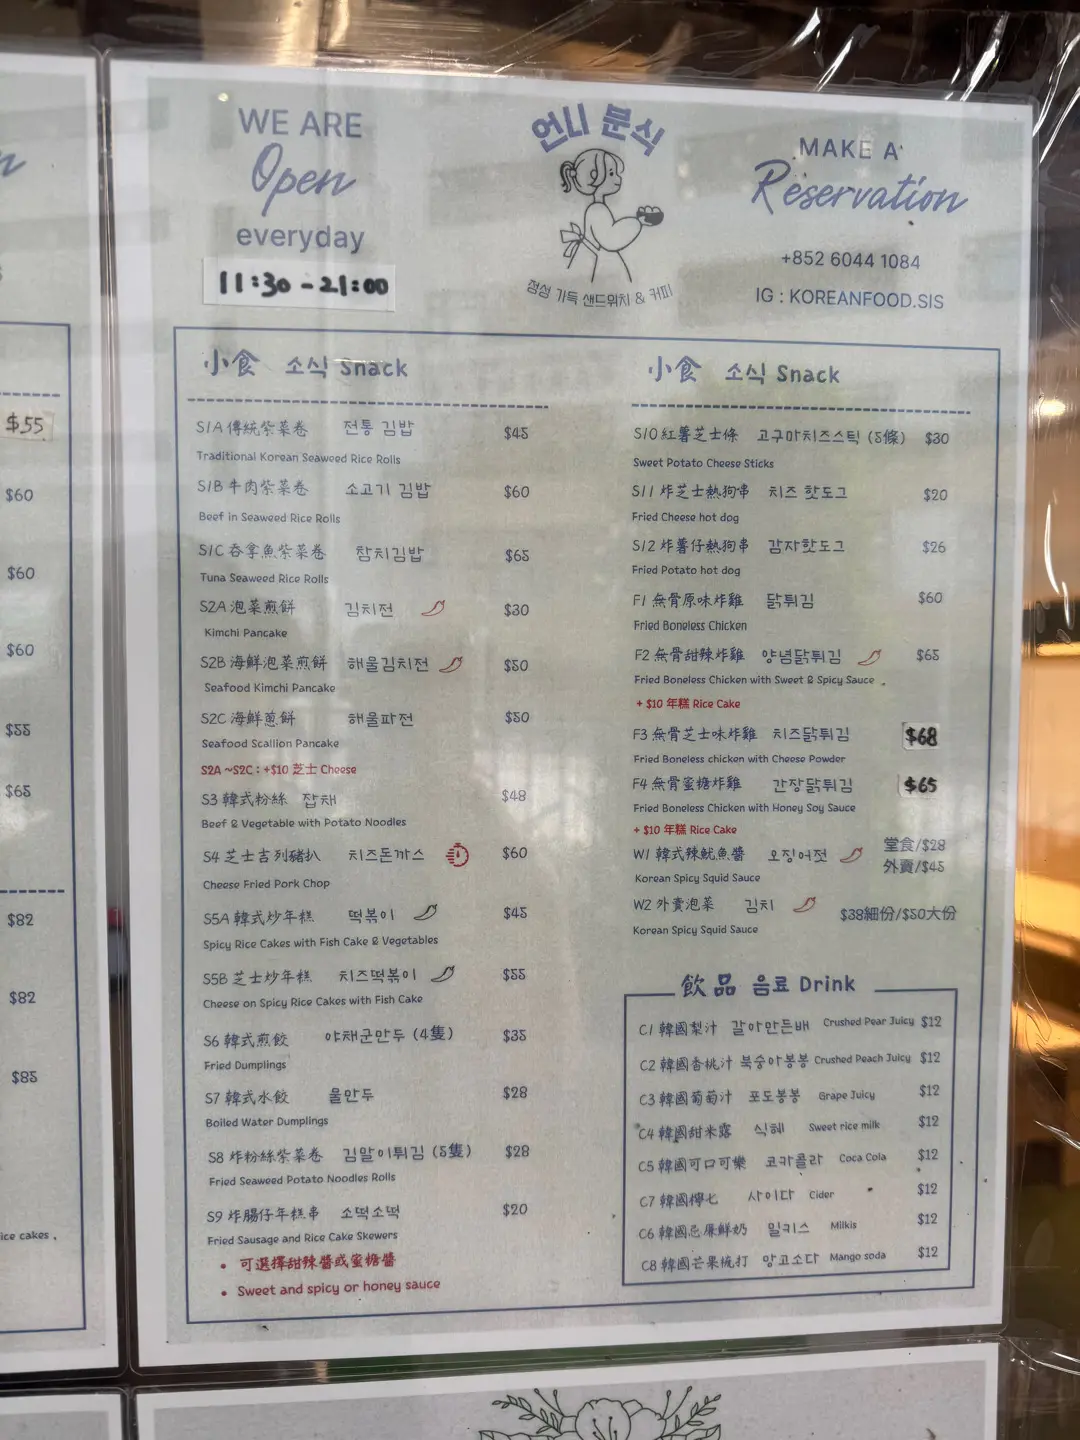 WE ARE
Open
everyday
11:30 - 21:00
언니 분식
정성 가득 샌드위치 & 커피
MAKE A
Reservation
+852 6044 1084
IG : KOREANFOOD.SIS
$55
$60
$60
$60
$55
$65
$82
$82
$85
ice cakes ,
小食 소식 Snack
S1A 傳統紫菜卷 전통 김밥 $45
Traditional Korean Seaweed Rice Rolls
S1B 牛肉紫菜卷 소고기 김밥 $60
Beef in Seaweed Rice Rolls
S1C 吞拿魚紫菜卷 참치김밥 $65
Tuna Seaweed Rice Rolls
S2A 泡菜煎餅 김치전 $30
Kimchi Pancake
S2B 海鮮泡菜煎餅 해물김치전 $50
Seafood Kimchi Pancake
S2C 海鮮蔥餅 해물파전 $50
Seafood Scallion Pancake
S2A ~S2C : +$10 芝士 Cheese
S3 韓式粉絲 잡채 $48
Beef & Vegetable with Potato Noodles
S4 芝士吉列豬扒 치즈돈까스 $60
Cheese Fried Pork Chop
S5A 韓式炒年糕 떡볶이 $45
Spicy Rice Cakes with Fish Cake & Vegetables
S5B 芝士炒年糕 치즈떡볶이 $55
Cheese on Spicy Rice Cakes with Fish Cake
S6 韓式煎餃 야채군만두 (4隻) $35
Fried Dumplings
S7 韓式水餃 물만두 $28
Boiled Water Dumplings
S8 炸粉絲紫菜卷 김말이튀김 (5隻) $28
Fried Seaweed Potato Noodles Rolls
S9 炸腸仔年糕串 소떡소떡 $20
Fried Sausage and Rice Cake Skewers
• 可選擇甜辣醬或蜜糖醬
• Sweet and spicy or honey sauce
小食 소식 Snack
S10 紅薯芝士條 고구마치즈스틱 (5條) $30
Sweet Potato Cheese Sticks
S11 炸芝士熱狗串 치즈 핫도그 $20
Fried Cheese hot dog
S12 炸薯仔熱狗串 감자핫도그 $26
Fried Potato hot dog
F1 無骨原味炸雞 닭튀김 $60
Fried Boneless Chicken
F2 無骨甜辣炸雞 양념닭튀김 $65
Fried Boneless Chicken with Sweet & Spicy Sauce
+ $10 年糕 Rice Cake
F3 無骨芝士味炸雞 치즈닭튀김 $68
Fried Boneless chicken with Cheese Powder
F4 無骨蜜糖炸雞 간장닭튀김 $65
Fried Boneless Chicken with Honey Soy Sauce
+ $10 年糕 Rice Cake
W1 韓式辣魷魚醬 오징어젓 堂食/$28
外賣/$45
Korean Spicy Squid Sauce
W2 外賣泡菜 김치 $38細份/$50大份
Korean Spicy Squid Sauce
飲品 음료 Drink
C1 韓國梨汁 갈아만든배 Crushed Pear Juicy $12
C2 韓國香桃汁 복숭아봉봉 Crushed Peach Juicy $12
C3 韓國葡萄汁 포도봉봉 Grape Juicy $12
C4 韓國甜米露 식혜 Sweet rice milk $12
C5 韓國可口可樂 코카콜라 Coca Cola $12
C7 韓國檸七 사이다 Cider $12
C6 韓國忌廉鮮奶 밀키스 Milkis $12
C8 韓國芒果梳打 망고소다 Mango soda $12